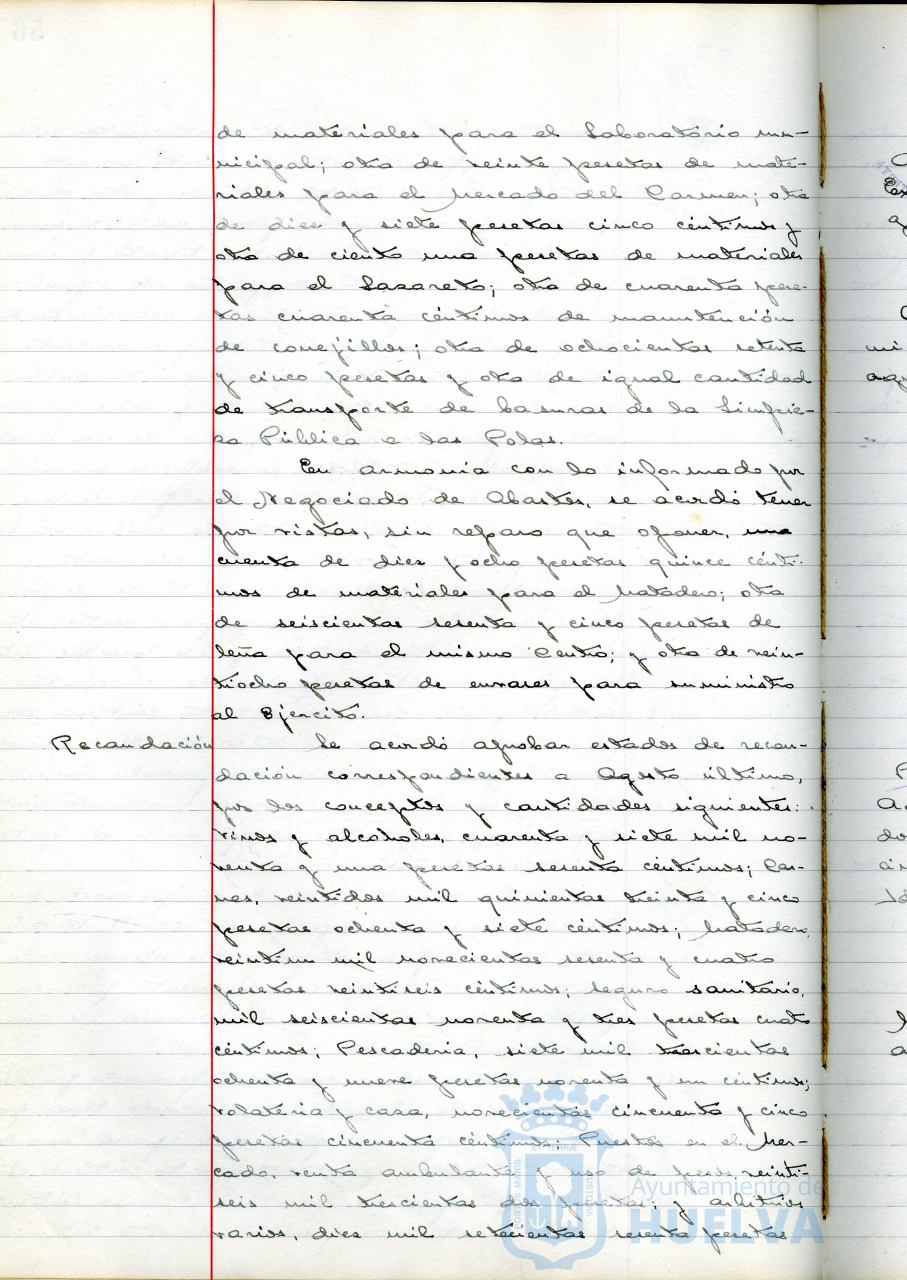 de materiales para el Laboratorio mu-
nicipal; otra de veinte pesetas de mate-
riales para el Mercado del Carmen; otra
de diez y siete pesetas cinco céntimos y
otra de ciento una pesetas de materiales
para el Lazareto; otra de cuarenta pese-
tas cuarenta céntimos de manutención
de conejillos; otra de ochocientas setenta
y cinco pesetas y otra de igual cantidad
de transporte de basuras de la Limpie-
za Pública a las Polas.
En armonia con lo informado por
el Negociado de Abastos, se acordó tener
por vistas, sin reparo que oponer, una
cuenta de diez y ocho pesetas quince cénti-
mos de materiales para el Matadero; otra
de seiscientas sesenta y cinco pesetas de
leña para el mismo Centro; y otra de vein-
tiocho pesetas de envases para suministro
al Ejército.
Recaudación Se acordó aprobar estados de recau-
dación correspondientes a Agosto último,
por los conceptos y cantidades siguientes:
Vinos y alcoholes, cuarenta y siete mil no-
venta y una pesetas sesenta céntimos; Car-
nes, veintidos mil quinientas treinta y cinco
pesetas ochenta y siete céntimos; Matadero,
veintiun mil novecientas sesenta y cuatro
pesetas veintiseis céntimos; Seguro sanitario,
mil seiscientas noventa y tres pesetas cuatro
céntimos; Pescaderia, siete mil trescientas
ochenta y nueve pesetas noventa y un céntimos;
Volateria y casa, novecientas cincuenta y cinco
pesetas cincuenta céntimos; Puestos en el Mer-
cado, venta ambulante y uso de pesos, veinti-
seis mil trescientas dos pesetas; y arbitrios
varios, diez mil setecientas sesenta pesetas
Ayuntamiento de
HUELVA